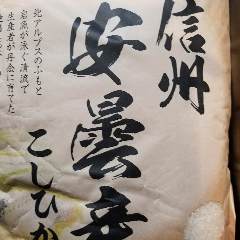 信州
安曇
こしひ
北アルプスのふもと
岩魚が泳ぐ清流で
生産者が丹念に育てた